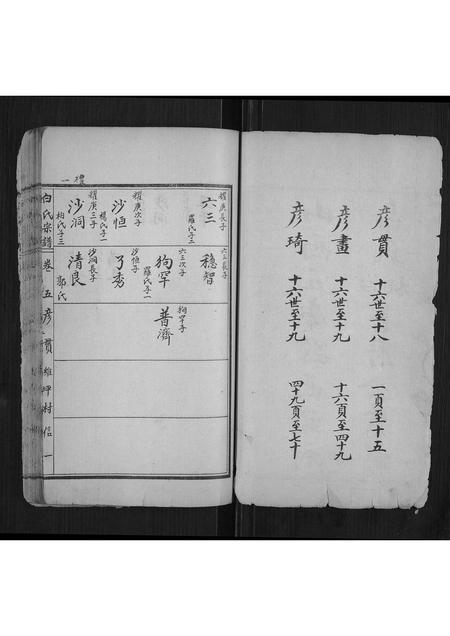 彦贯 十六世至十八 一頁至十五
彦畫 十六世至十九 十六頁至四十九
彦琦 十六世至十九 四十九頁至七十
禮一
耀庚長子
六三
羅氏子三
耀庚次子
沙怛
楊氏子一
耀庚三子
沙洞
柏氏子三
六三長子
穩智
六三次子
狗罕
羅氏子一
沙怛子
了秀
沙洞長子
清良
郭氏
狗罕子
普濟
白氏宗譜 卷五 彦贯 維坪村信 一